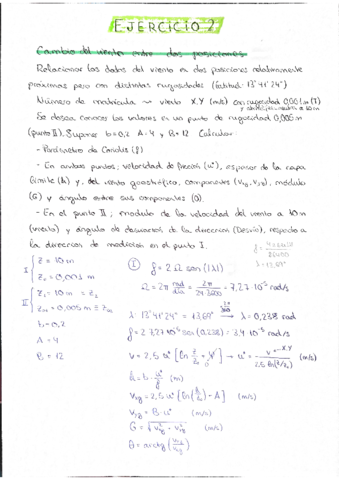 EJERCICIO 2
Cambio del viento entre dos posiciones
Relacionar los datos del viento en dos posiciones relativamente
próximas pero con distintas rugosidades (Latitud: 13°41'24")
Número de matrícula ~ viento X.Y (m/s) con rugosidad 0,001 m (I)
Se desea conocer los valores en un punto de rugosidad 0,005 m
(punto II). Suponer b=0,2 A=4 y B=12 Calcular:
- Parámetro de Coriolis (f)
- En ambos puntos; velocidad de fricción (u*), espesor de la capa
límite (h) y, del viento geostrófico, componentes (Vxg, Vyg), módulo
(G) y ángulo entre sus componentes (θ).
- En el punto II; modulo de la velocidad del viento a 10 m
(viento) y ángulo de desviación de la dirección (Desvío), respecto a
la dirección de medición en el punto I.
I { z = 10 m
z₀ = 0,001 m
II { z₁ = 10 m = z₂
z₀₁ = 0,005 m = z₀₂
b = 0,2
A = 4
B = 12
(I) f = 2 Ω sen(|λ|)
Ω = 2π rad/día = 2π/24·3600 = 7,27·10⁻⁵ rad/s
λ = 13°41'24" = 13,69° → λ = 0,238 rad
f = 2·7,27·10⁻⁵ sen(0,238) = 3,4·10⁻⁵ rad/s
h = b · u*/f (m)
(m/s)
(m/s)
G = √(Vxg² + Vyg²) (m/s)